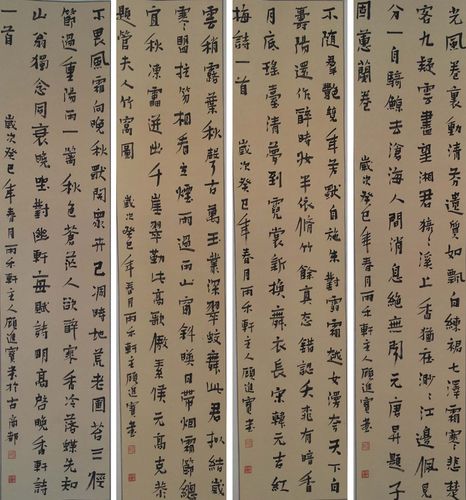 光風卷裏動清芬遺質如飄七澤雲楚
客九疑雲盡望湘君猗猗溪上香猶在渺渺江邊佩
分一自騎鯨去滄海人間消息絕無聞元唐昇題子
固蕙蘭卷 歲次癸巳年春月兩禾軒主人顧進寶書
不隨群艷競年芳獨自施朱對雪霜越女漫誇天下白
壽陽還作醉時妝半依脩竹餘真態錯認夭桃有暗香
月底瑤臺清夢到霓裳新換舞衣長宋韓元吉紅
梅詩一首 歲次癸巳年春月兩禾軒主人顧進寶書
雲稍露葉秋聲古萬玉叢深翠蛟舞此君擬結歲
寒盟拄笏相看立煙雨過西山窗斜暎日帶烟霜節
宜秋凍雷迸出千崖翠勤此高歌儆素侯元高克恭
題管夫人竹窩圖 歲次癸巳年春月兩禾軒主人顧進寶書
不畏風霜向晚欺獨開衆卉已凋時地荒老圃苔三徑
節過重陽雨一籬秋色蒼茫人欲醉寒香冷落蝶先知
山翁獨念同衰晚坐對幽軒每賦詩明高啓晚香軒詩
一首 歲次癸巳年春月兩禾軒主人顧進寶書於古商都